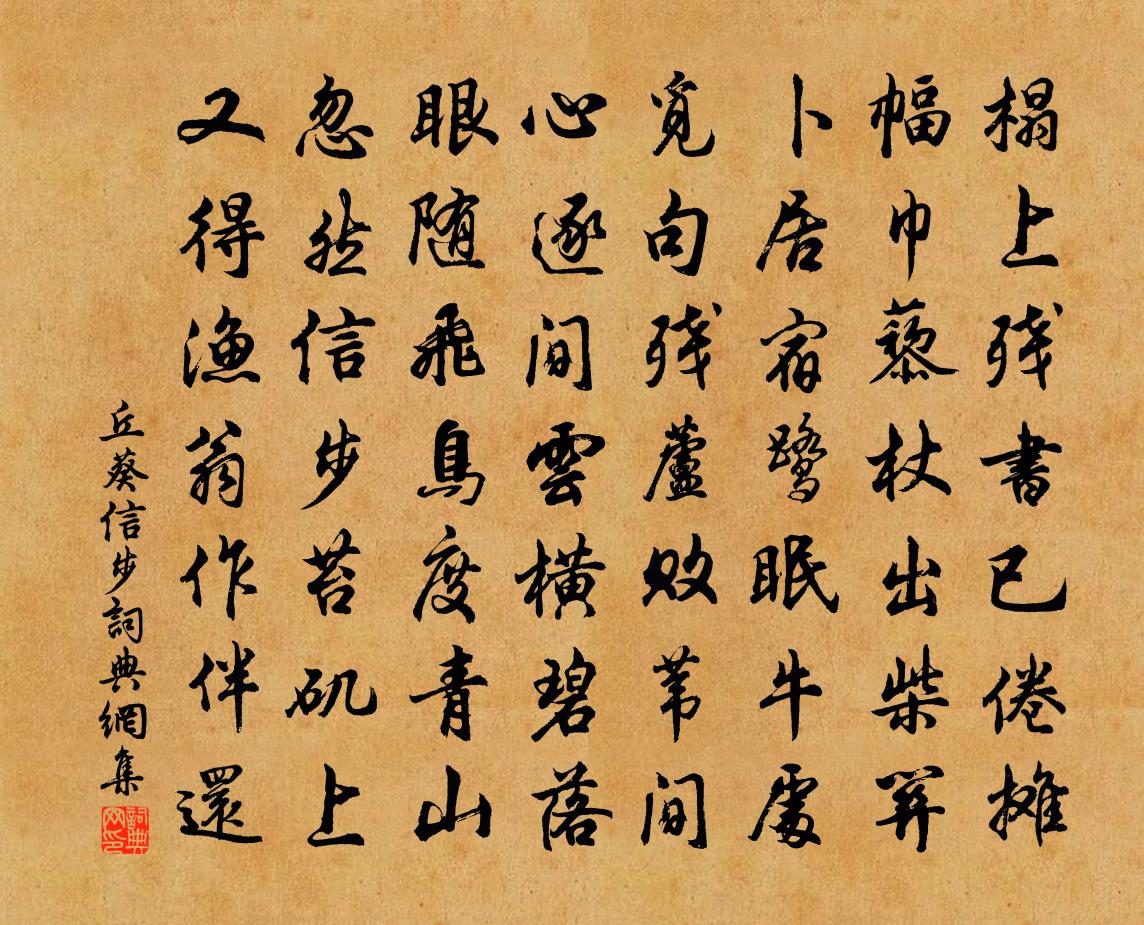 榻上残書已倦攤
幅巾藜杖出柴關
卜居宿鷺眠牛處
覓句残蘆敗苇間
心逐間雲横碧落
眼随飛鳥度青山
忽然信步苔矶上
又得漁翁作伴還
丘葵信步詞典網集
詞典網印